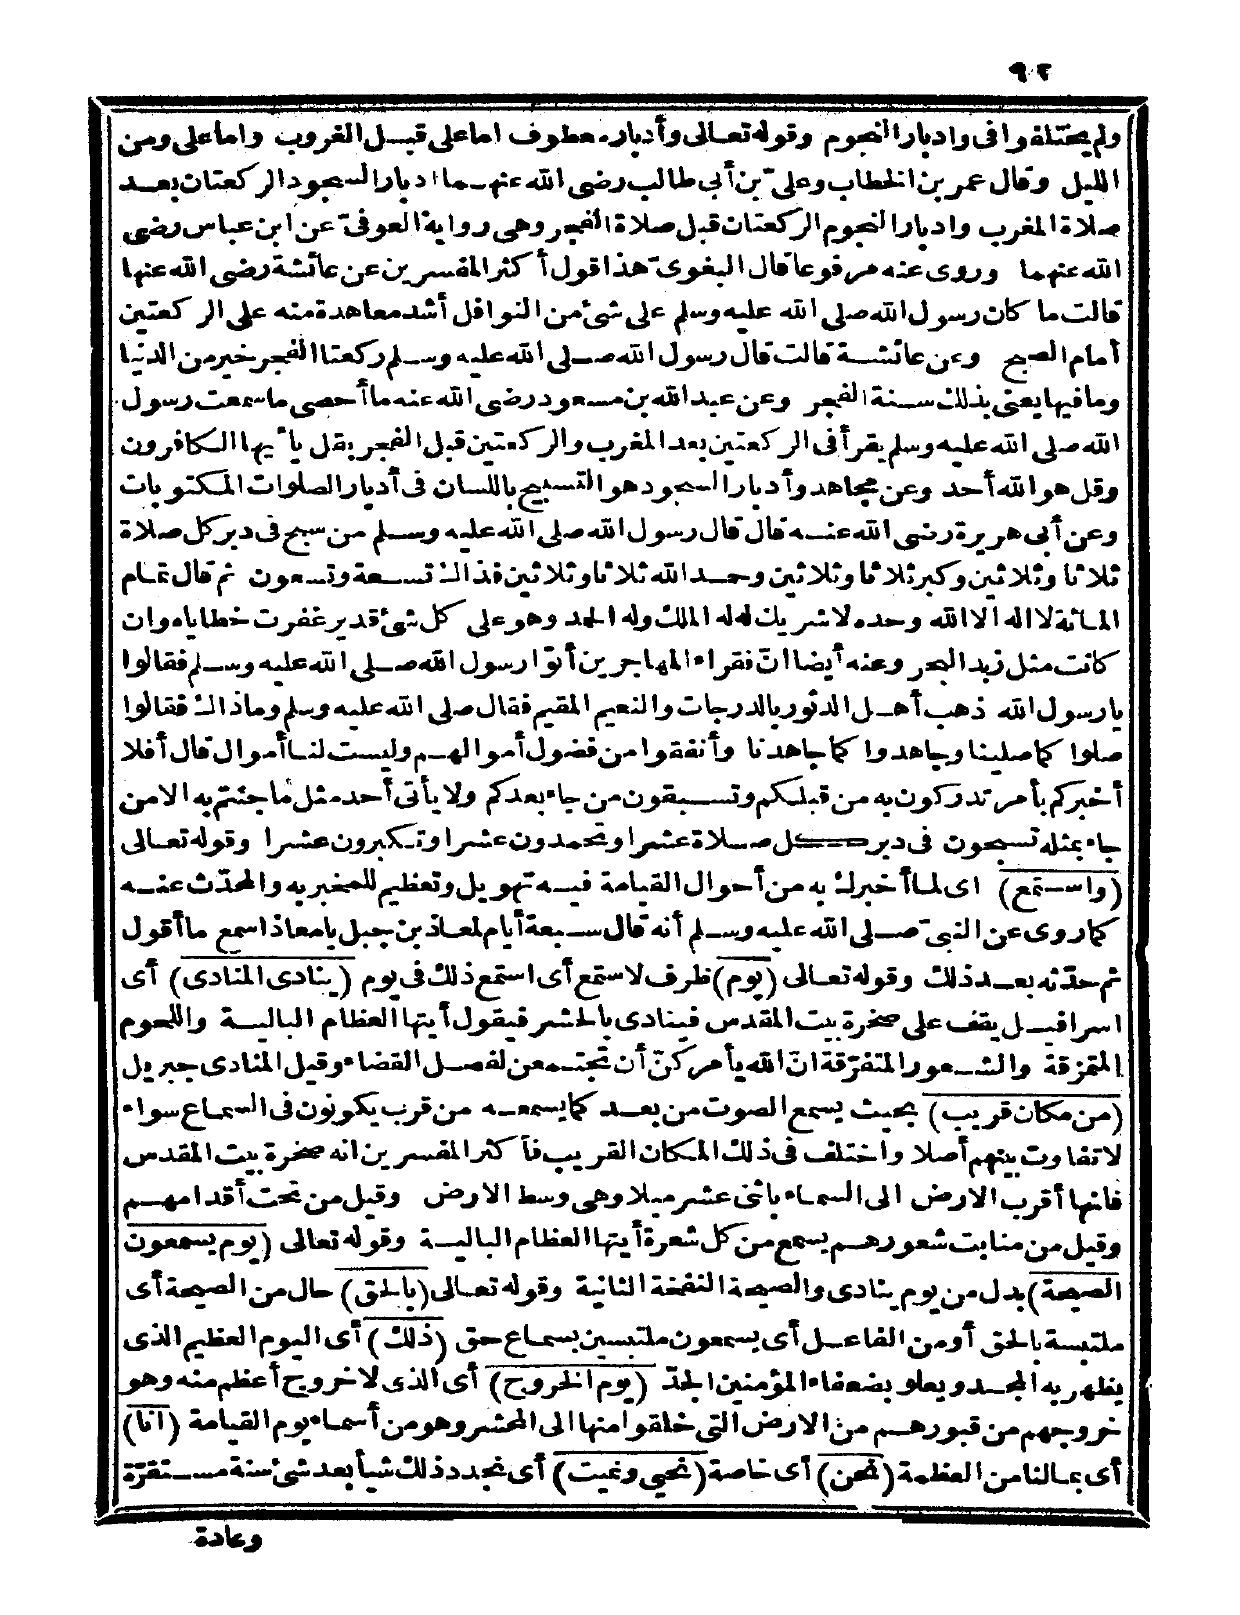 ٩٢
ولم يختلفوا فى وادبار النجوم وقوله تعالى وأدبار معطوف اما على قبل الغروب واما على ومن
الليل وقال عمر بن الخطاب وعلىّ بن أبى طالب رضى الله عنهما ادبار السجود الركعتان بعد
صلاة المغرب وادبار النجوم الركعتان قبل صلاة الفجر وهى رواية العوفىّ عن ابن عباس رضى
الله عنهما وروى عنه مرفوعا قال البغوىّ هذا قول أكثر المفسرين عن عائشة رضى الله عنها
قالت ما كان رسول الله صلى الله عليه وسلم على شئ من النوافل أشد معاهدة منه على الركعتين
أمام الصبح وعن عائشة قالت قال رسول الله صلى الله عليه وسلم ركعتا الفجر خير من الدنيا
وما فيها يعنى بذلك سنة الفجر وعن عبد الله بن مسعود رضى الله عنه ما أحصى ما سمعت رسول
الله صلى الله عليه وسلم يقرأ فى الركعتين بعد المغرب والركعتين قبل الفجر بقل يا أيها الكافرون
وقل هو الله أحد وعن مجاهد وأدبار السجود هو التسبيح باللسان فى أدبار الصلوات المكتوبات
وعن أبى هريرة رضى الله عنه قال قال رسول الله صلى الله عليه وسلم من سبح فى دبر كل صلاة
ثلاثا وثلاثين وكبر ثلاثا وثلاثين وحمد الله ثلاثا وثلاثين فذلك تسعة وتسعون ثم قال تمام
المائة لا اله الا الله وحده لا شريك له له الملك وله الحمد وهو على كل شئ قدير غفرت خطاياه وان
كانت مثل زبد البحر وعنه أيضا انّ فقراء المهاجرين أتوا رسول الله صلى الله عليه وسلم فقالوا
يا رسول الله ذهب أهل الدثور بالدرجات والنعيم المقيم فقال صلى الله عليه وسلم وما ذاك فقالوا
صلوا كما صلينا وجاهدوا كما جاهدنا وأنفقوا من فضول أموالهم وليست لنا أموال قال أفلا
أخبركم بأمر تدركون به من قبلكم وتسبقون من جاء بعدكم ولا يأتى أحد مثل ما جئتم به الا من
جاء بمثله تسبحون فى دبر كل صلاة عشرا وتحمدون عشرا وتكبرون عشرا وقوله تعالى
(واستمع) اى لما أخبرك به من أحوال القيامة فيه تهويل وتعظيم للمخبر به والمحدّث عنه
كما روى عن النبىّ صلى الله عليه وسلم أنه قال سبعة أيام لمعاذ بن جبل يا معاذ اسمع ما أقول
ثم حدّثه بعد ذلك وقوله تعالى (يوم) ظرف لاستمع أى استمع ذلك فى يوم (ينادى المنادى) أى
اسرافيل يقف على صخرة بيت المقدس فينادى بالحشر فيقول أيتها العظام البالية واللحوم
المتمزقة والشعور المتفرّقة انّ الله يأمركنّ أن تجتمعن لفصل القضاء وقيل المنادى جبريل
(من مكان قريب) بحيث يسمع الصوت من بعد كما يسمعه من قرب يكونون فى السماع سواء
لا تفاوت بينهم أصلا واختلف فى ذلك المكان القريب فأكثر المفسرين انه صخرة بيت المقدس
فانها أقرب الارض الى السماء باثنى عشر ميلا وهى وسط الارض وقيل من تحت أقدامهم
وقيل من منابت شعورهم يسمع من كل شعرة أيتها العظام البالية وقوله تعالى (يوم يسمعون
الصيحة) بدل من يوم ينادى والصيحة النفخة الثانية وقوله تعالى (بالحق) حال من الصيحة أى
ملتبسة بالحق أو من الفاعل أى يسمعون ملتبسين بسماع حق (ذلك) أى اليوم العظيم الذى
يظهر به المجد ويعلو بضعفاء المؤمنين الجدّ (يوم الخروج) أى الذى لا خروج أعظم منه وهو
خروجهم من قبورهم من الارض التى خلقوا منها الى المحشر وهو من أسماء يوم القيامة (انا)
أى بمالنا من العظمة (نحن) أى خاصة (نحيى ونميت) أى نجدد ذلك شيأ بعد شئ سنة مستقرّة
وعادة